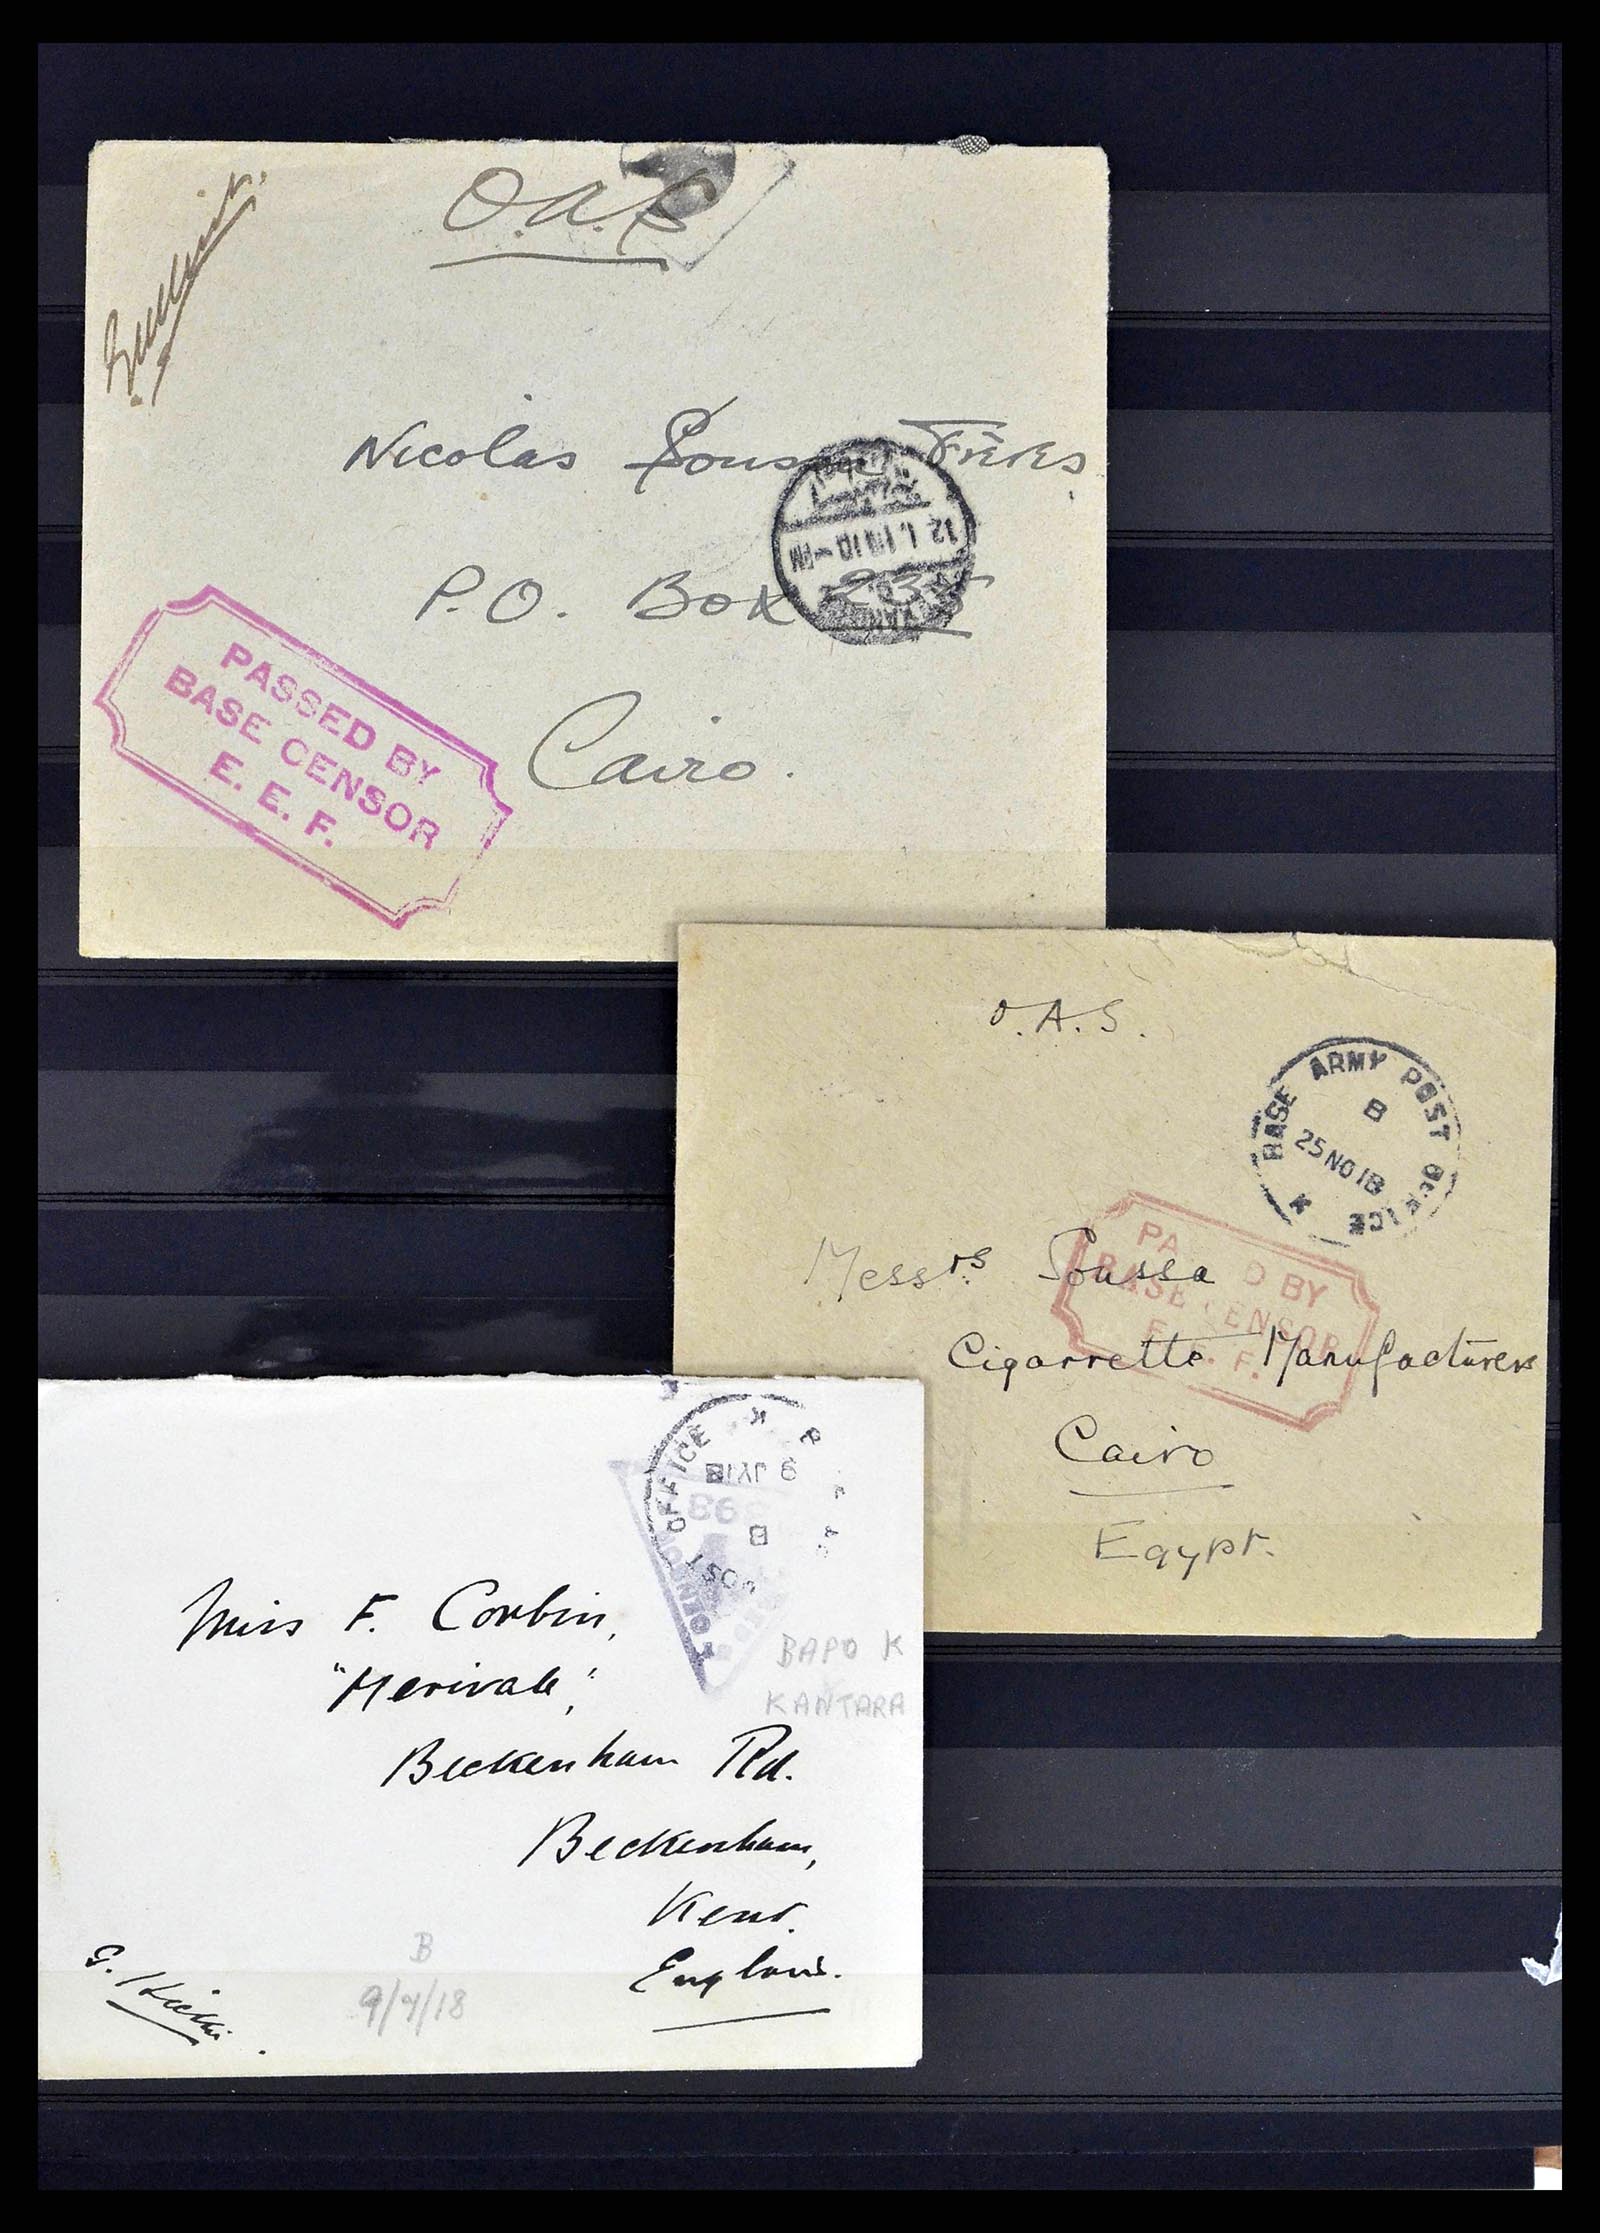 O.A.S
Nicolas Soussa Frères
P.O. Box 235
Cairo.
PASSED BY
BASE CENSOR
E. E. F.
O.A.S.
BASE ARMY POST OFFICE K
B
25 NO 18
Messrs Soussa
PA D BY
BASE CENSOR
E. F.
Cigarrette Manufacturers
Cairo
Egypt.
OFFICE K
9 JY 18
B
POST
Miss F. Corbin,
"Merivale,"
Beckenham Rd.
Beckenham,
Kent.
England.
BAPO K
KANTARA
B
9/7/18